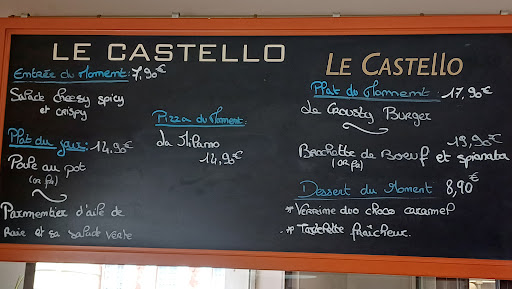 LE CASTELLO
Entrée du Moment: 7,90€
Salade cheesy spicy
et crispy
Plat du jour: 14,90€
Poule au pot
(OR
Parmentier d'aile de
Raie et sa salade verte
Pizza du Moment:
La Milano
14,90€
LE CASTELLO
Plat du Moment 17,90€
Le Crousty Burger
19,90€
Brochette de Boeuf et spianata
(OR
Dessert du Moment 8,90€
* Verrine duo choco caramel
* Tartelette fraîcheur